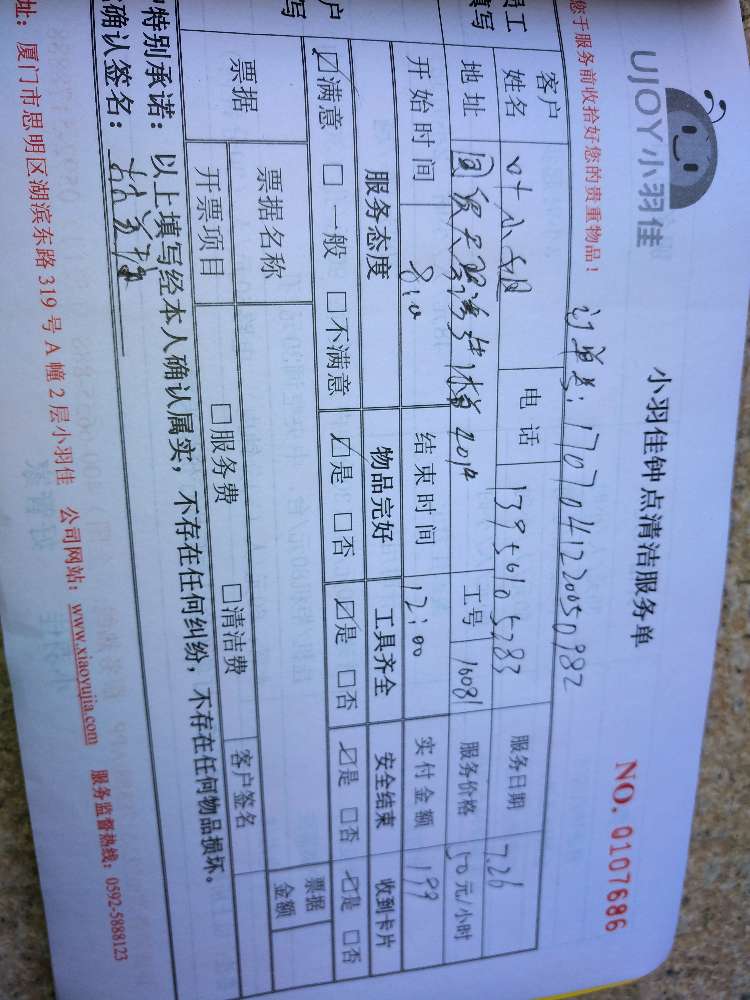 UJOY小羽佳
小羽佳钟点清洁服务单
NO. 0107686
您于服务前收拾好您的贵重物品!
订单号:1707041220050982
员工
填写
客户
姓名
叶小姐
电话
13950105283
服务日期
7.26
地址
工号
10081
服务价格
50元/小时
开始时间
8:10
结束时间
12:00
实付金额
199
户
写
服务态度
物品完好
工具齐全
安全结束
收到卡片
☑满意 □一般 □不满意
☑是 □否
☑是 □否
☑是 □否
☑是 □否
票据
票据名称
票据
金额
开票项目
□服务费 □清洁费
客户签名
特别承诺:以上填写经本人确认属实,不存在任何纠纷,不存在任何物品损坏。
确认签名:
址:厦门市思明区湖滨东路319号A幢2层小羽佳 公司网站:www.xiaoyujia.com 服务监督热线:0592-5888123